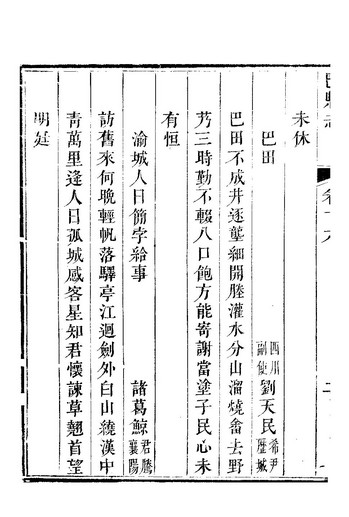 巴縣志
卷十六
未休
巴田
四川副使
劉天民
希尹歷城
巴田不成井逐壟細開塍灌水分山溜燒畬去野
艿三時勤不輟八口飽方能寄謝當塗子民心未
有恒
渝城人日簡字給事
諸葛鯨
君騰襄陽
訪舊來何晚輕帆落驛亭江迴劍外白山繞漢中
靑萬里逢人日孤城感客星知君懷諫草翹首望
明廷